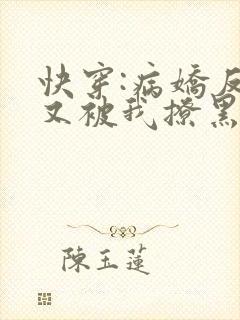 快穿:病嬌反
又被我撩黑
陳玉蓮